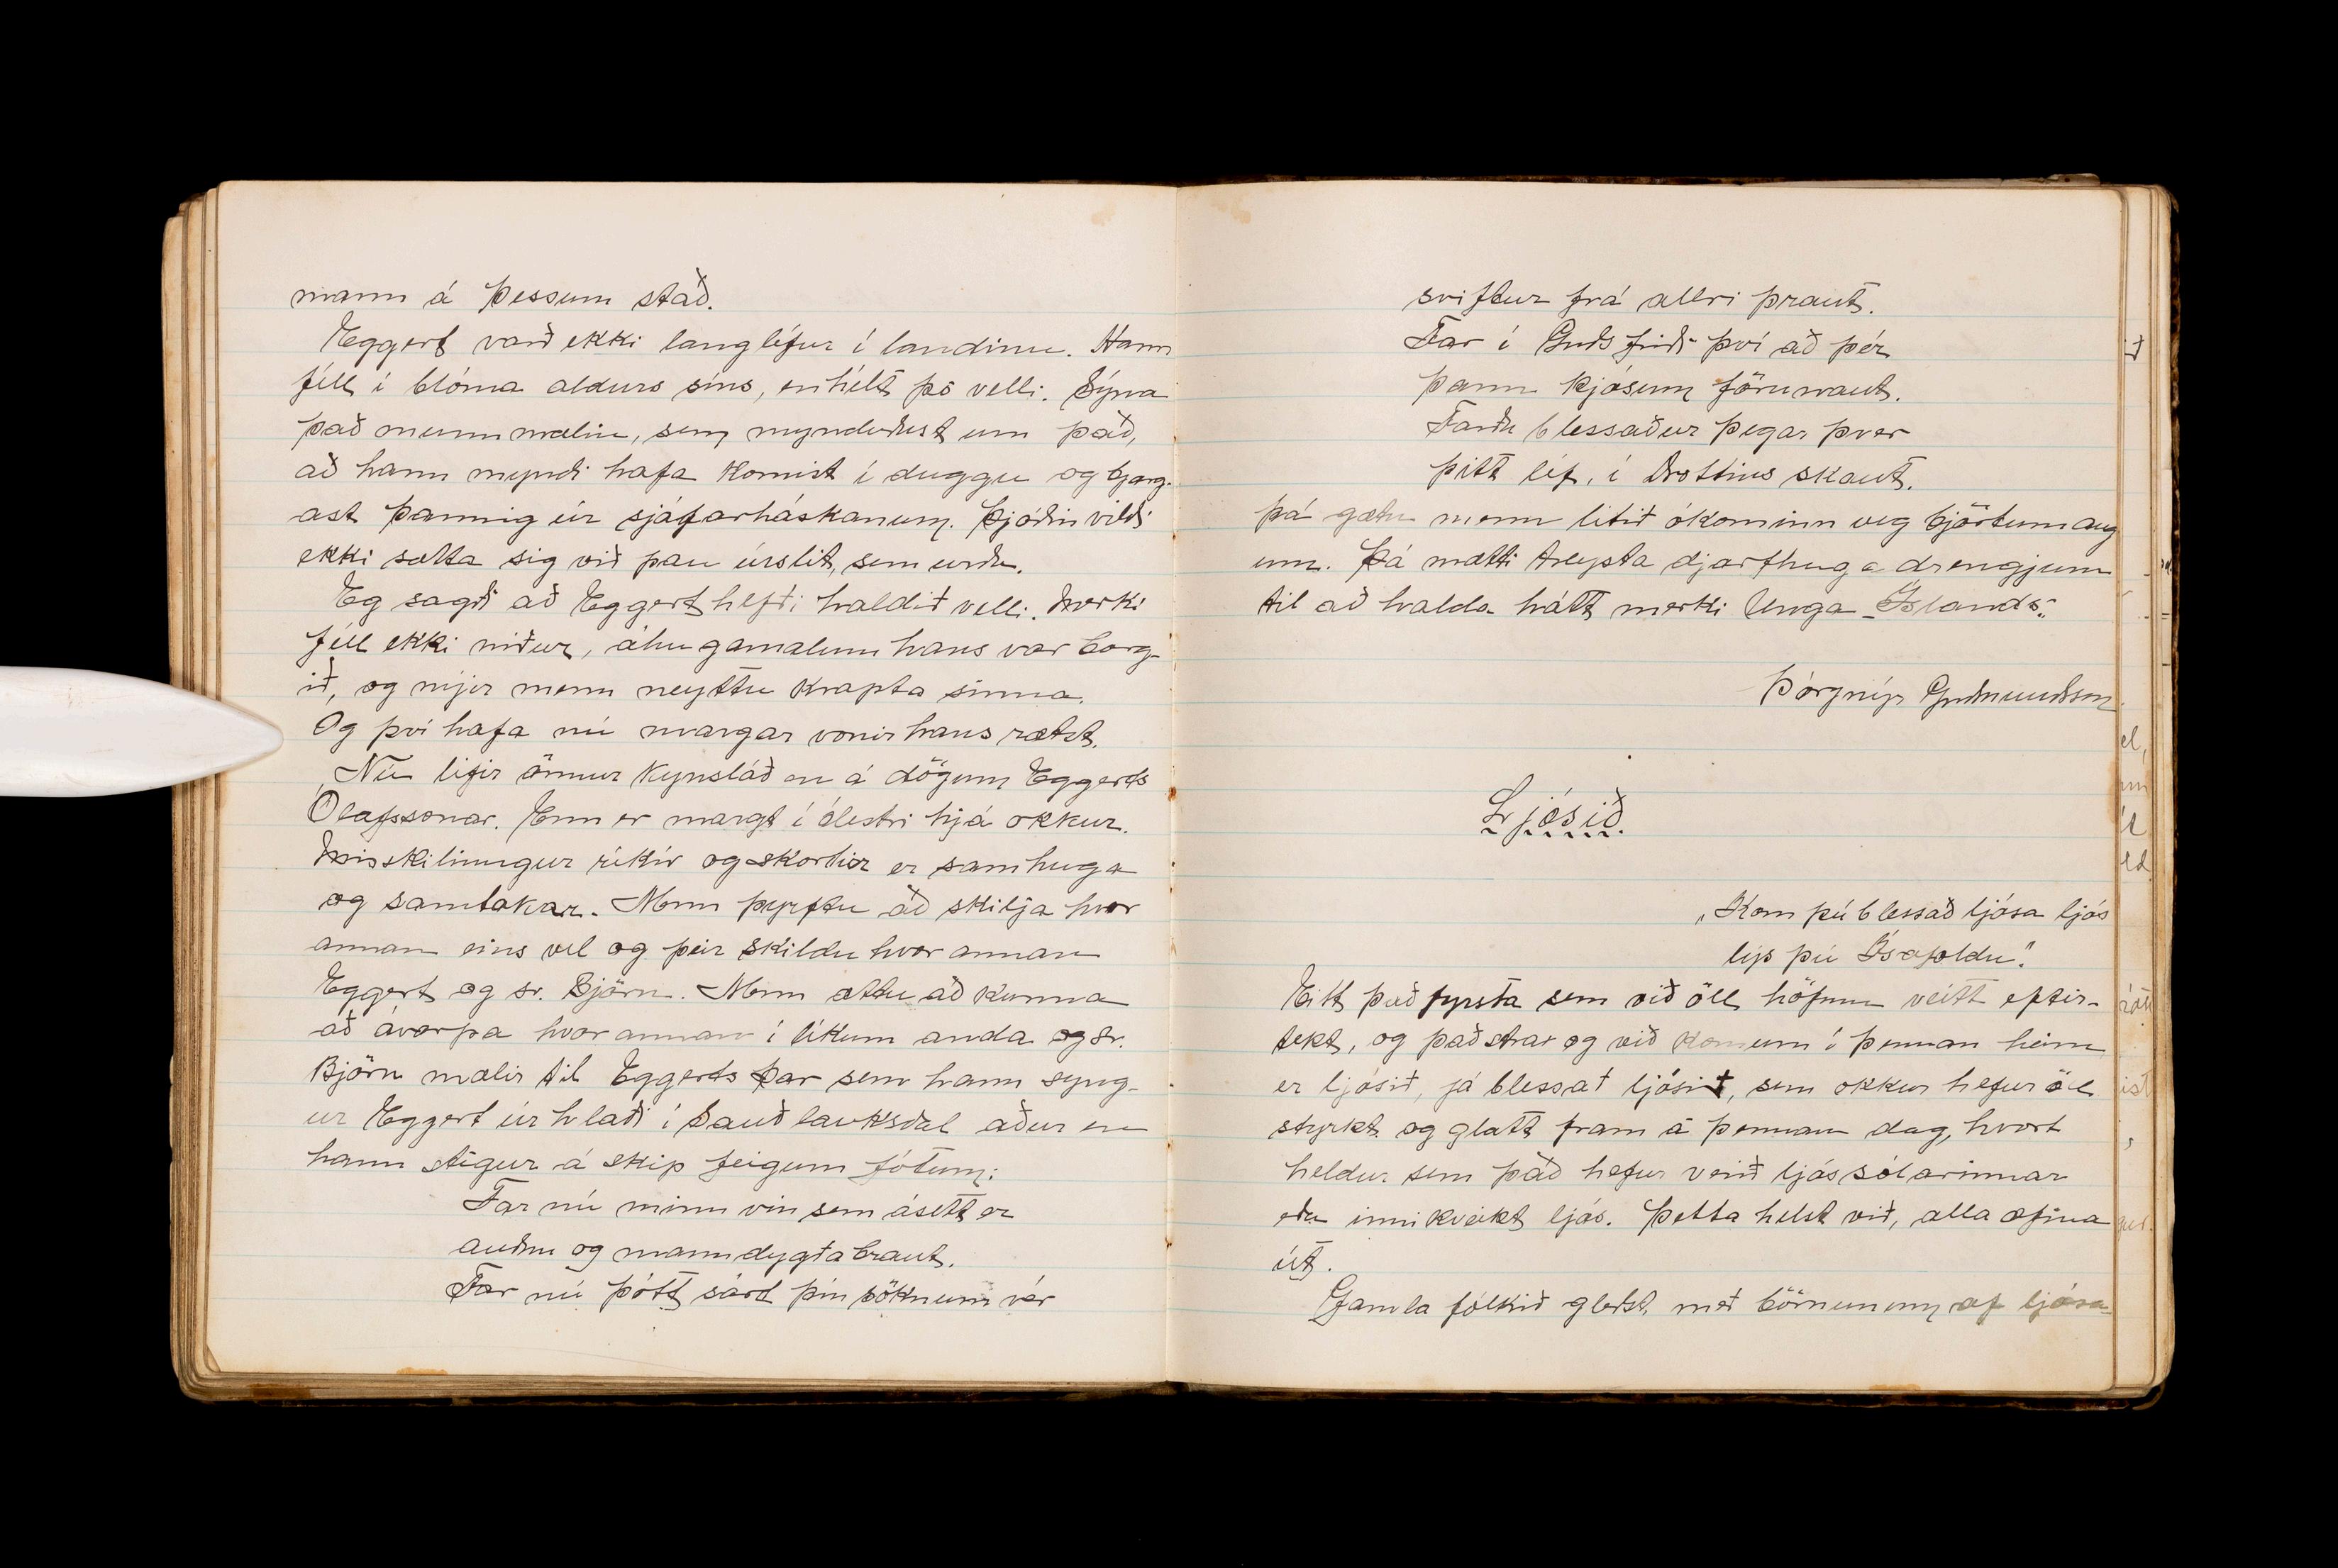 mann á þessum stað.
Eggert varð ekki langlífur í landinu. Hann
féll í blóma aldurs síns, en hélt þó velli. Sýna
það munnmælin, sem mynduðust um það,
að hann myndi hafa komist í duggu og bjarg-
ast þannig úr sjáfarháskanum. Þjóðin vildi
ekki sætta sig við þau úrslit, sem urðu.
Eg sagði að Eggert hefði haldið velli. Merki
féll ekki niður, áhugamalum hans var borg-
ið, og nýir menn neyttu krapta sinna.
Og því hafa nú margar vonir hans rætst.
Nú lifir önnur kynslóð en á dögum Eggerts
Ólafssonar. Enn er margt í ólestri hjá okkur.
Misskilningur ríkir og skortur er samhuga
og samtakar. Menn þyrftu að skilja hvor
annan eins vel og þeir skildu hvor annan
Eggert og sr. Björn. Menn ættu að kunna
að ávarpa hvor annan í líkum anda og sr.
Björn mælir til Eggerts þar sem hann syng-
ur Eggert úr hlaði í Sauðlauksdal aður en
hann stígur á skip feigum fótum:
Far nú minn vin sem ásett er
auðnu og manndygða braut.
Far nú þótt sárt þín söknum vér
sviftur frá allri þraut.
Far í Guðs friði því að þér
þann kjósum förunaut.
Farðu blessaður þegar þver
þitt líf, í Drottins skaut.
þá gætu menn litið ókominn veg björtum aug
um. Þá mætti treysta djarfhuga drengjum
til að halda hátt merki Unga-Íslands."
Þórgnýr Guðmundsson
Ljósið.
„Kom þú blessað ljósa ljós
lýs þú Ísafoldu".
Eitt það fyrsta sem við öll höfum veitt eftir-
tekt, og það strax og við komum í þennan heim
er ljósið, já blessað ljósið, sem okkur hefur öll
styrkt og glatt fram á þennan dag, hvort
heldur sem það hefur verið ljós sólarinnar
eða inni kveikt ljós. Þetta helst við, alla æfina
út.
Gamla fólkið gleðst með börnunum af ljósa-